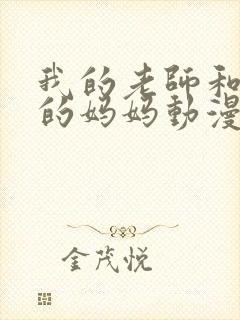 我的老師和
的媽媽動漫
金茂悦